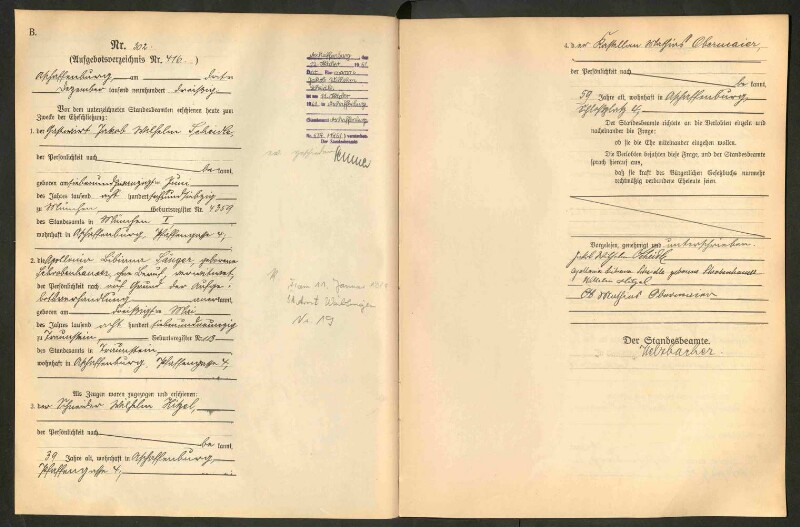 B.
Nr. 202.
(Aufgebotsverzeichnis Nr. 416.)
Aschaffenburg, am dritten
Dezember tausend neunhundert dreißig.
Vor dem unterzeichneten Standesbeamten erschienen heute zum
Zwecke der Eheschließung:
1. der Gastwirt Jakob Wilhelm
der Persönlichkeit nach
be kannt,
geboren am siebenundzwanzigsten Juni
des Jahres tausend acht hundert sechsundsiebzig
zu München Geburtsregister Nr. 4359
des Standesamts in München I.
wohnhaft in Aschaffenburg, Pfaffengasse 4,
2. die Apollonia Bibiana Singer, geborene
ohne Beruf, verwitwet,
der Persönlichkeit nach auf Grund der Aufge-
botsverhandlung anerkannt,
geboren am dreißigsten Mai
des Jahres tausend acht hundert siebenundneunzig
zu Traunstein Geburtsregister Nr.
des Standesamts in Traunstein,
wohnhaft in Aschaffenburg, Pfaffengasse 4,
Als Zeugen waren zugezogen und erschienen:
3. der Schneider Wilhelm Hitzel,
der Persönlichkeit nach
be kannt,
39 Jahre alt, wohnhaft in Aschaffenburg,
Pfaffengasse 4,
Aschaffenburg, den
Oktober
Jakob Wilhelm
Oktober
Aschaffenburg
Standesamt Aschaffenburg
Der Standesbeamte
11. Januar
Nr. 19
4. der Kastellan Mathias Obermaier,
der Persönlichkeit nach
be kannt,
59 Jahre alt, wohnhaft in Aschaffenburg,
Schloßplatz 4,
Der Standesbeamte richtete an die Verlobten einzeln und
nacheinander die Frage:
ob sie die Ehe miteinander eingehen wollen.
Die Verlobten bejahten diese Frage, und der Standesbeamte
sprach hierauf aus,
daß sie kraft des Bürgerlichen Gesetzbuchs nunmehr
rechtmäßig verbundene Eheleute seien.
Vorgelesen, genehmigt und unterschrieben.
Jakob Wilhelm
Apollonia Bibiana geborene
Wilhelm Hitzel
Mathias Obermaier
Der Standesbeamte.